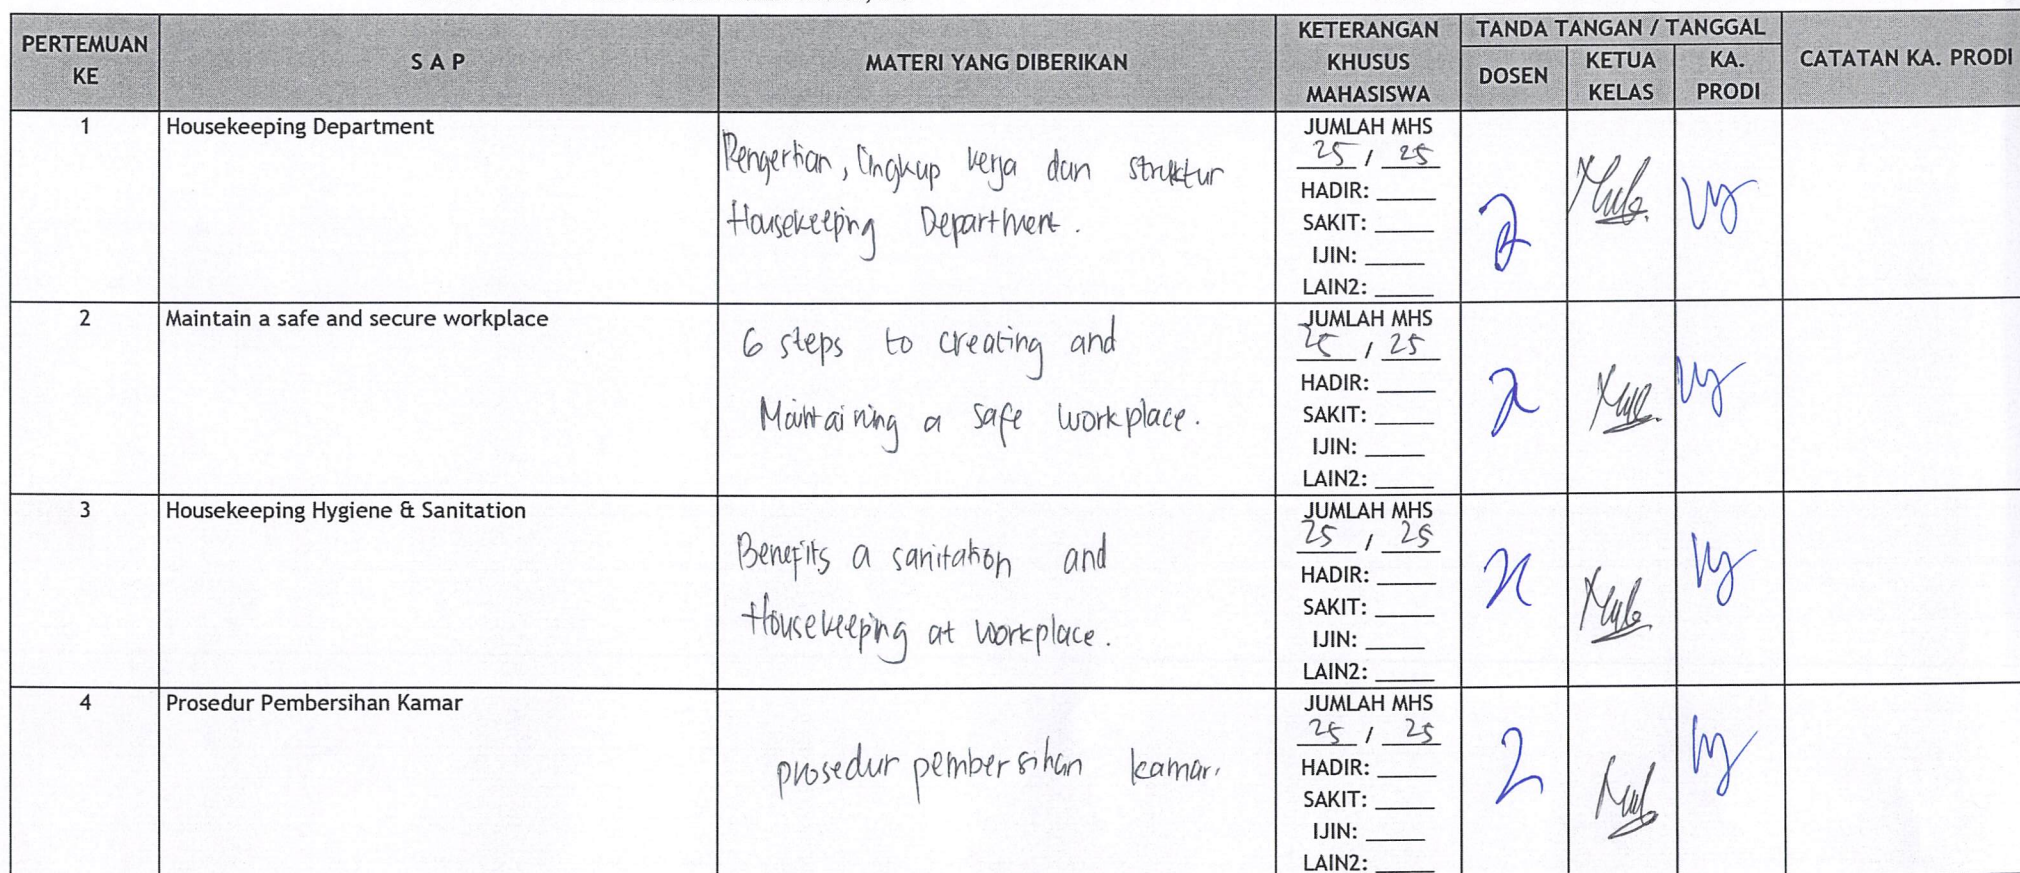 PERTEMUAN KE
S A P
MATERI YANG DIBERIKAN
KETERANGAN KHUSUS MAHASISWA
TANDA TANGAN / TANGGAL
DOSEN
KETUA KELAS
KA. PRODI
CATATAN KA. PRODI
1
Housekeeping Department
Pengertian, lingkup kerja dan struktur
Housekeeping Department.
JUMLAH MHS
25 / 25
HADIR:
SAKIT:
IJIN:
LAIN2:
2
Maintain a safe and secure workplace
6 steps to creating and
Maintaining a safe workplace.
JUMLAH MHS
25 / 25
HADIR:
SAKIT:
IJIN:
LAIN2:
3
Housekeeping Hygiene & Sanitation
Benefits a sanitation and
Housekeeping at workplace.
JUMLAH MHS
25 / 25
HADIR:
SAKIT:
IJIN:
LAIN2:
4
Prosedur Pembersihan Kamar
prosedur pembersihan kamar.
JUMLAH MHS
25 / 25
HADIR:
SAKIT:
IJIN:
LAIN2: